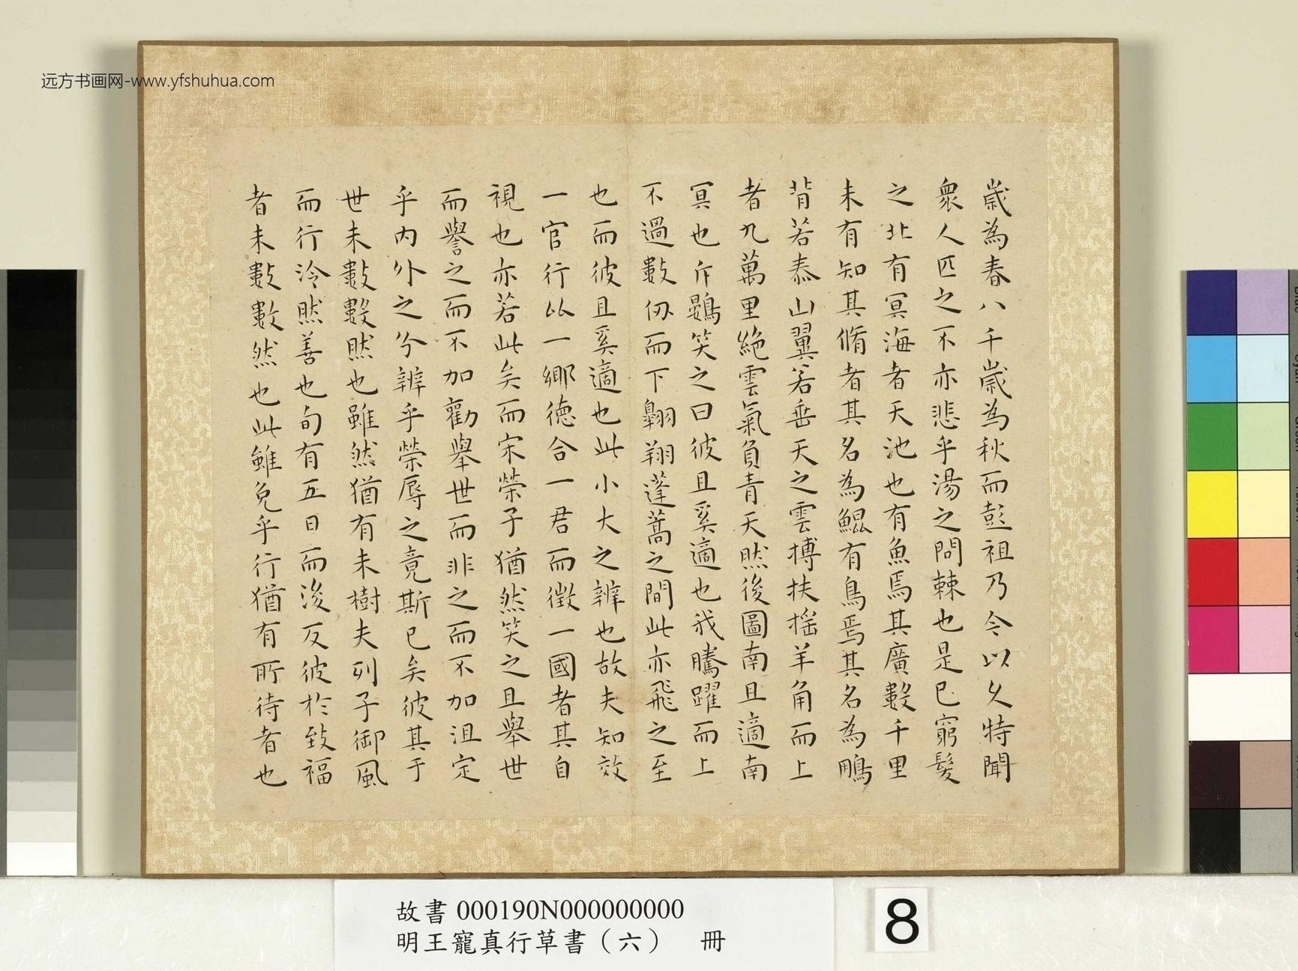 远方书画网-www.yfshuhua.com
歲為春八千歲為秋而彭祖乃今以久特聞
衆人匹之不亦悲乎湯之問棘也是已窮髮
之北有冥海者天池也有魚焉其廣數千里
未有知其脩者其名為鯤有鳥焉其名為鵬
背若泰山翼若垂天之雲摶扶搖羊角而上
者九萬里絶雲氣負青天然後圖南且適南
冥也斥鷃笑之曰彼且奚適也我騰躍而上
不過數仞而下翱翔蓬蒿之間此亦飛之至
也而彼且奚適也此小大之辨也故夫知效
一官行比一鄉德合一君而徵一國者其自
視也亦若此矣而宋榮子猶然笑之且舉世
而譽之而不加勸舉世而非之而不加沮定
乎内外之分辨乎榮辱之竟斯已矣彼其于
世未數數然也雖然猶有未樹夫列子御風
而行泠然善也旬有五日而後反彼於致福
者未數數然也此雖免乎行猶有所待者也
故書 000190N000000000
明王寵真行草書（六） 冊
8